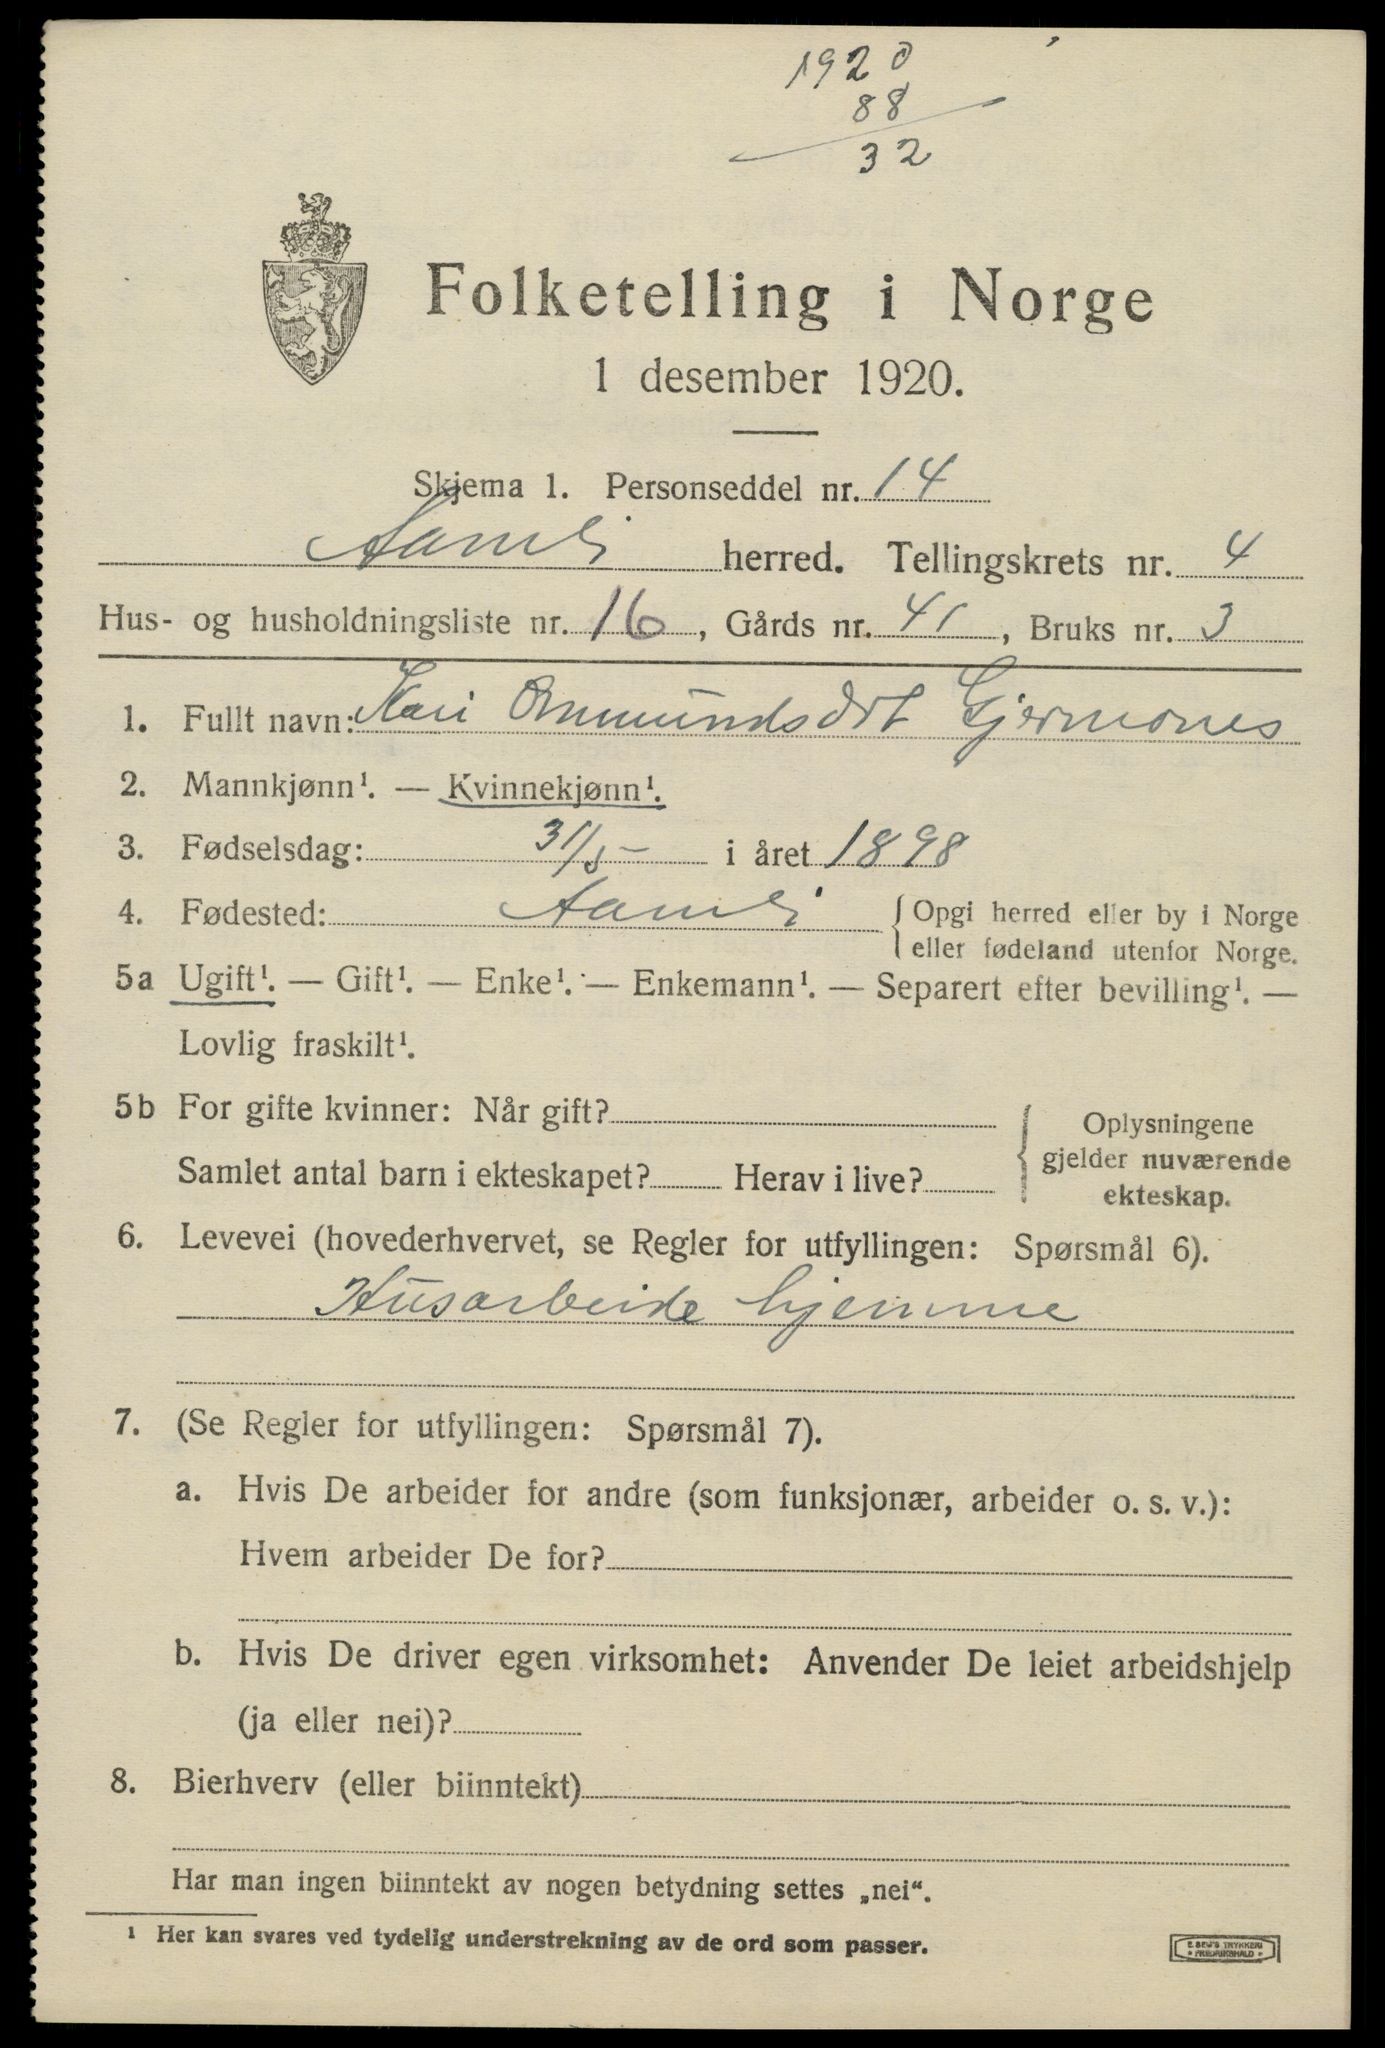 1920
88
32
Folketelling i Norge
1 desember 1920.
Skjema 1. Personseddel nr. 14
Aamli herred. Tellingskrets nr. 4
Hus- og husholdningsliste nr. 16, Gårds nr. 41, Bruks nr. 3
1. Fullt navn: Kari Onmundsdrt Gjermones
2. Mannkjønn¹. — Kvinnekjønn¹.
3. Fødselsdag: 31/5- i året 1898
4. Fødested: Aamli { Opgi herred eller by i Norge
eller fødeland utenfor Norge.
5a Ugift¹. — Gift¹. — Enke¹. — Enkemann¹. — Separert efter bevilling¹. —
Lovlig fraskilt¹.
5b For gifte kvinner: Når gift?
Samlet antal barn i ekteskapet? Herav i live?
{ Oplysningene
gjelder nuværende
ekteskap.
6. Levevei (hovederhvervet, se Regler for utfyllingen: Spørsmål 6).
Husarbeide hjemme
7. (Se Regler for utfyllingen: Spørsmål 7).
a. Hvis De arbeider for andre (som funksjonær, arbeider o. s. v.):
Hvem arbeider De for?
b. Hvis De driver egen virksomhet: Anvender De leiet arbeidshjelp
(ja eller nei)?
8. Bierhverv (eller biinntekt)
Har man ingen biinntekt av nogen betydning settes „nei“.
¹ Her kan svares ved tydelig understrekning av de ord som passer.
E. SEM'S TRYKKERI
• FREDRIKSHALD •